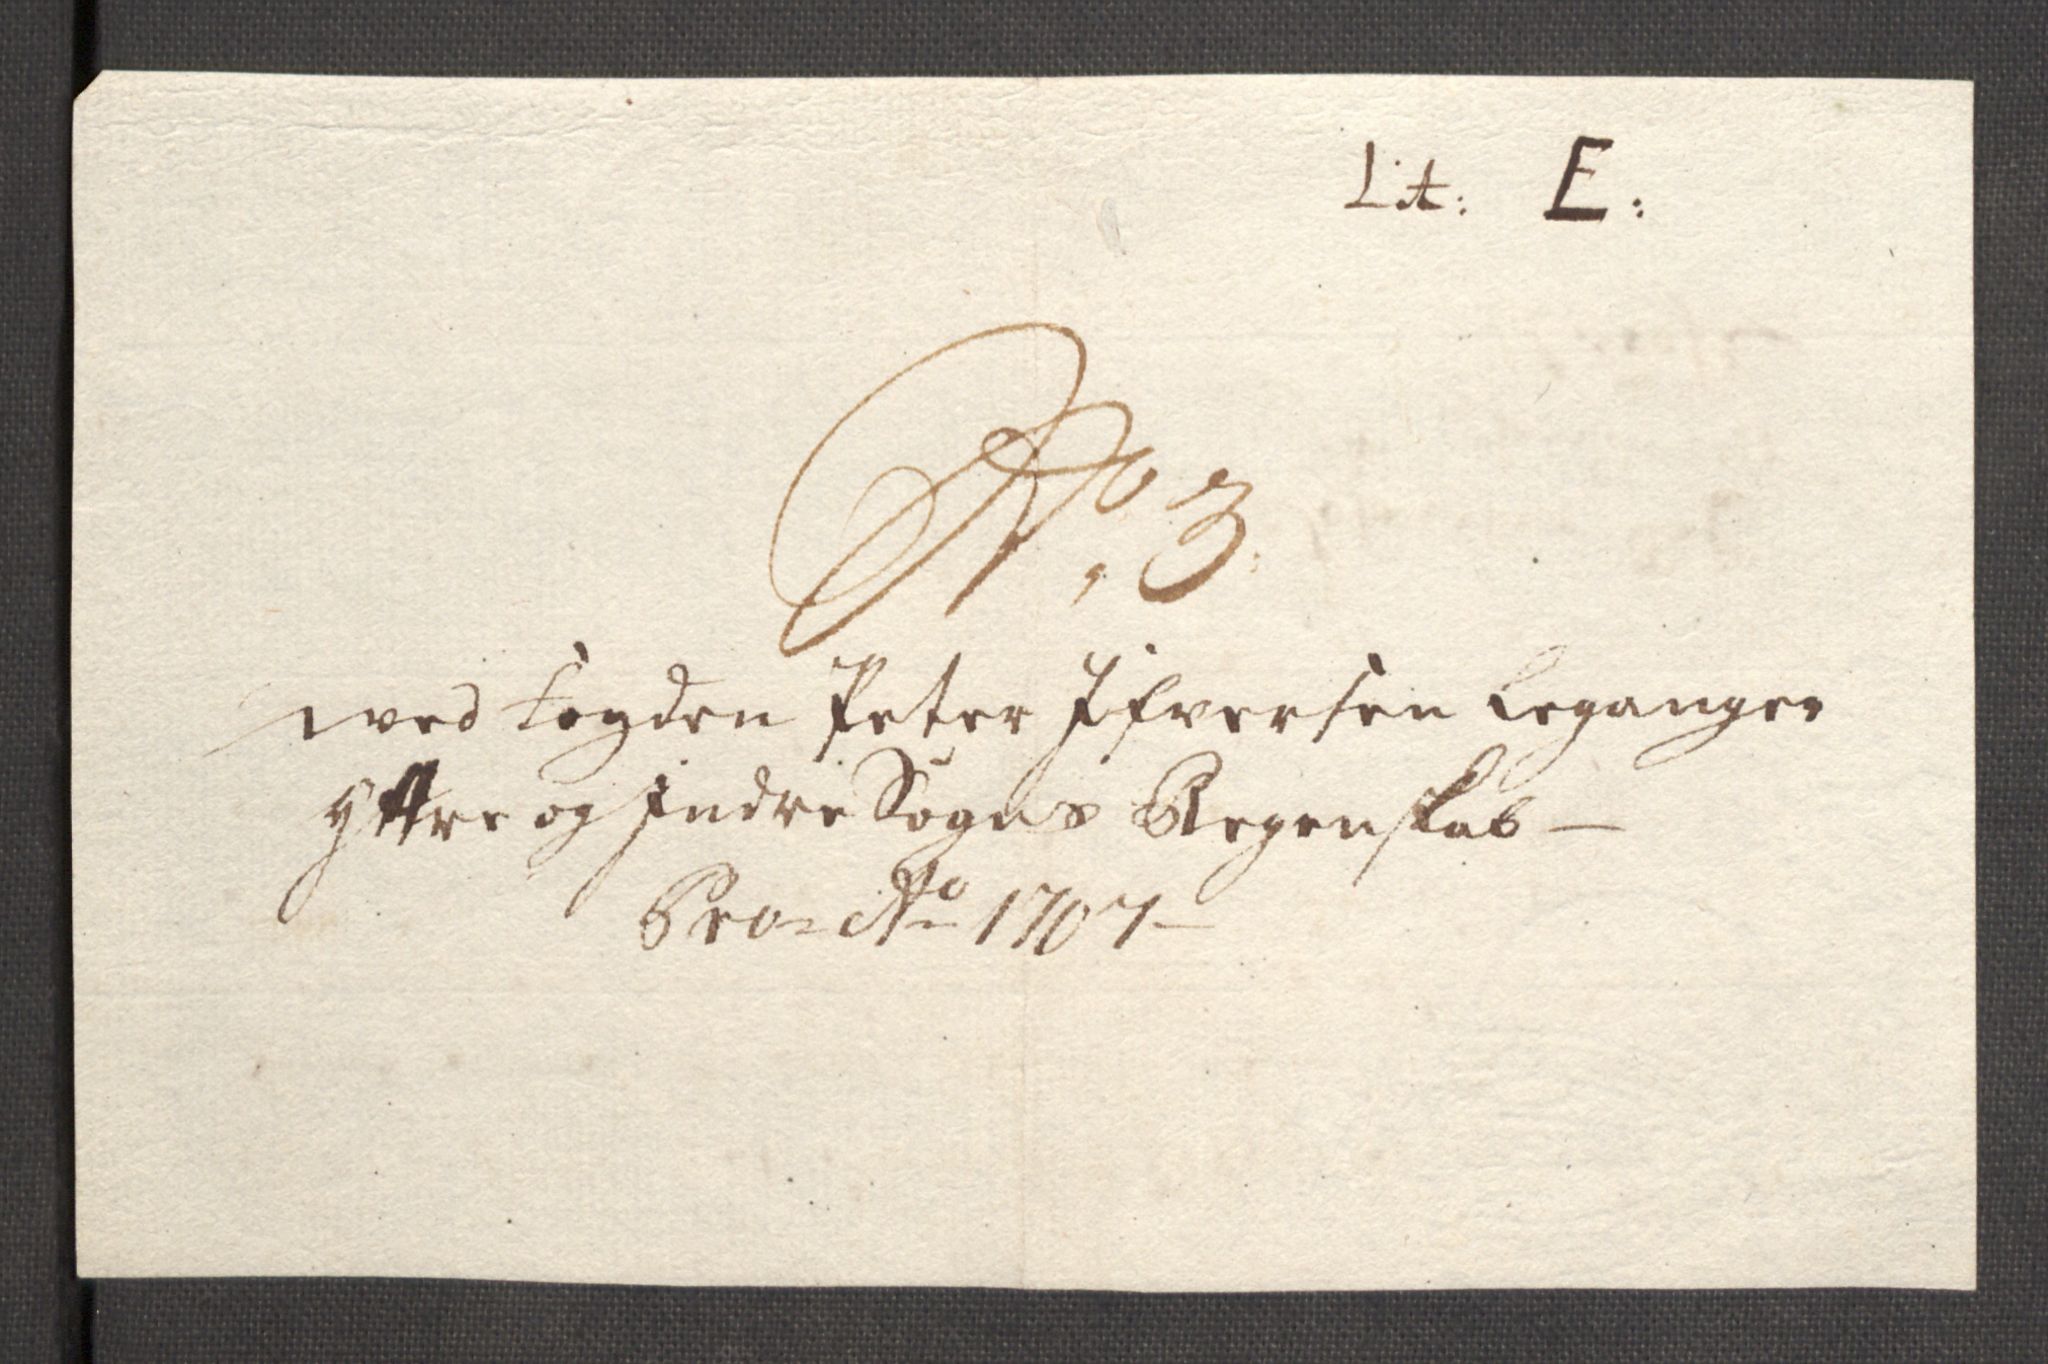 Lit: E:
No. 3.
wed fogden Peter Ifversen Leganger
Yttre og Indre Sogns Regenskab —
Pro Ao 1707 —